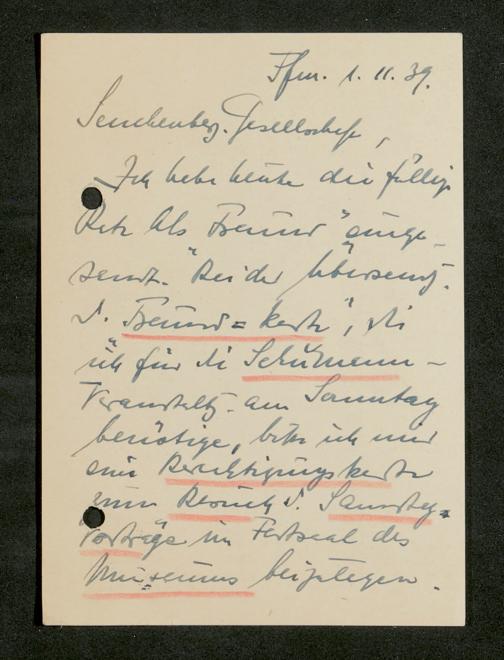 Ffm. 1. 11. 39.
Senckenberg. Gesellschaft,
Ich habe heute die fällige
Rate als Freund "einge-
sandt." Bei der Übersend.
d. "Freund=karte", die
ich für die Schumann-
Veranstaltg. am Sonntag
benötige, bitte ich mir
eine Berechtigungskarte
zum Besuch d. Samstag-
Vorträge im Festsaal des
Museums beizulegen.